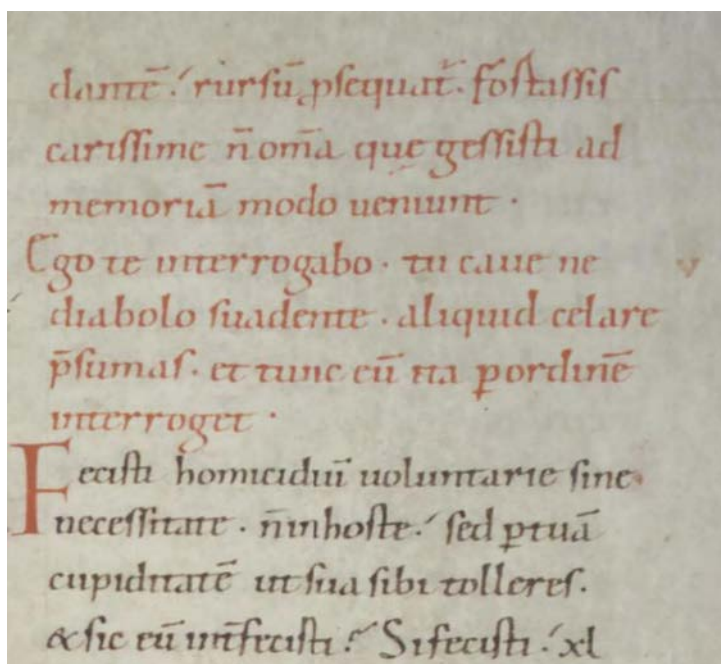 dantē. rursū p̱sequat̄. fostassis
carissime n̄ om̄a quę gessisti ad
memoriā modo ueniunt.
Ego te interrogabo. tu caue ne
diabolo suadente. aliquid celare
p̄sumas. et tunc eū ita ꝑ ordinē
interroget.
Fecisti homicidiū uoluntarie sine
necessitate. n̄ in hoste. sed ꝑ tuā
cupiditatē ut sua sibi tolleres.
& sic eū int̄fecisti? Si fecisti. xl